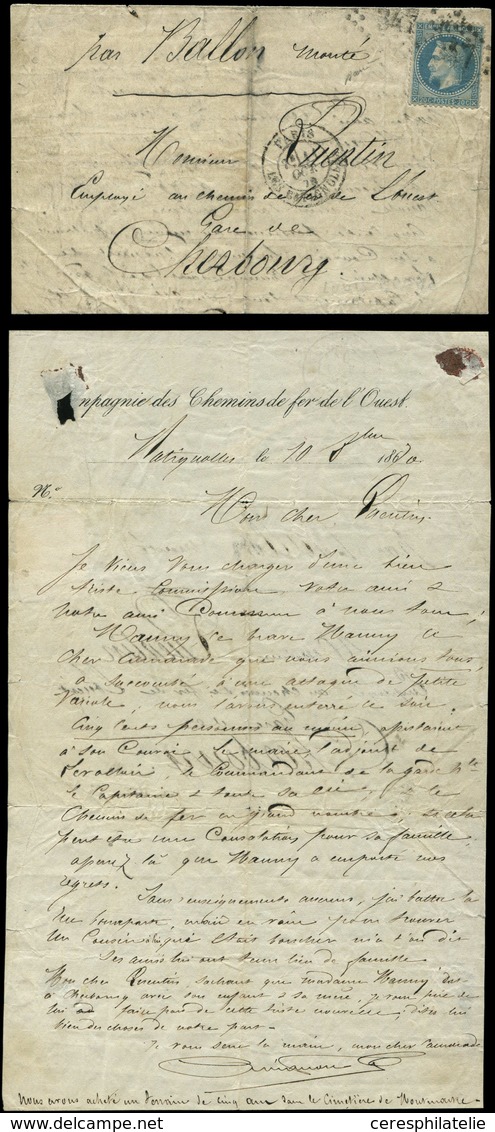 par Ballon monté
Monsieur Quentin
Employé au chemin de fer de l'Ouest
Gare de
Cherbourg.
PARIS
LES BATIGNOLLES
mpagnie des Chemins de fer de l'Ouest.
Batignolles le 10 8bre 1870
N°
Mon cher Quentin,
Je viens vous charger d'une bien
triste Commission Votre ami &
notre ami Commun à nous tous,
Hanny ce brave Hanny ce
cher Camarade que nous aimions tous,
a succombé à une attaque de petite
Variole, nous l'avons enterré ce soir.
Cinq Cents personnes au moins, assistaient
à son Convoi le maire, l'adjoint de
Levallois, le Commandant de la garde Nle
le Capitaine & toute sa Cie & le
Chemin de fer en grand nombre, si cela
peut être une Consolation pour sa famille,
ajoutez là que Hanny a emporté nos
regrets.
Sans renseignements aucuns, j'ai battre la
rue en vain pour trouver
un Cousin éloigné boucher m'a t'on dit
Ses amis lui ont tenu lieu de famille
Mon cher Quentin, sachant que madame Hanny est
à Cherbourg avec son enfant & sa mère, je vous prie de
lui faire part de cette triste nouvelle; dites lui
bien des choses de notre part.
Je vous serre la main, mon cher Camarade
Nous avons acheté un terrain de cinq ans dans le Cimetière de Montmartre.
www.delcampe.net
ceresphilatelie